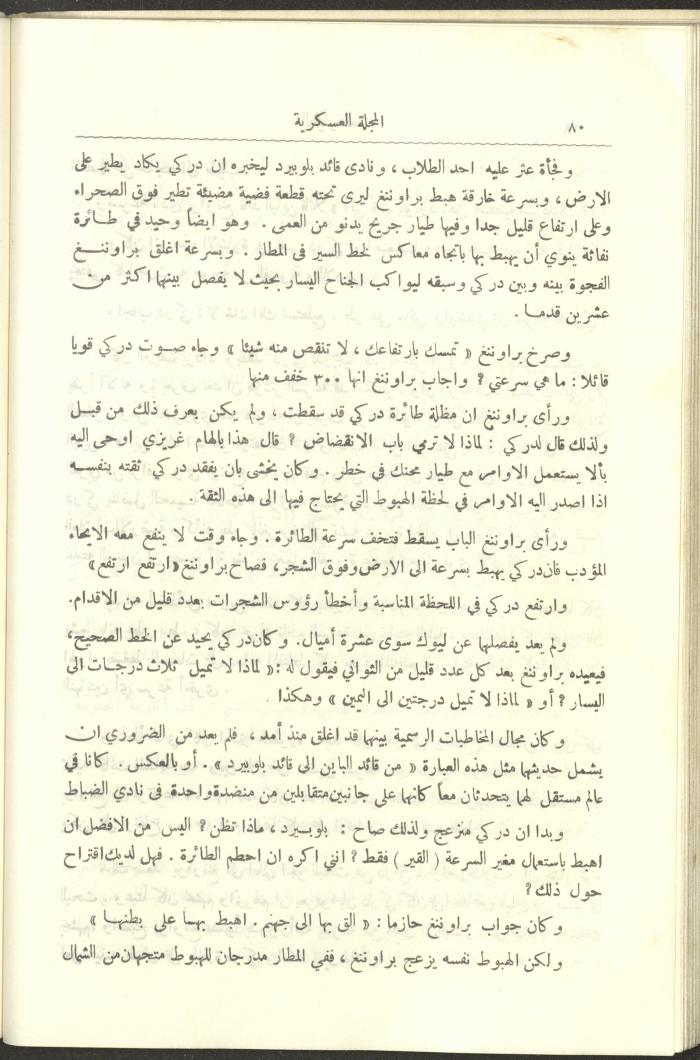 ٨٠
المجلة العسكرية
وفجأة عثر عليه احد الطلاب ، ونادى قائد بلوبيرد ليخبره ان دركي يكاد يطير على
الارض ، وبسرعة خارقة هبط براوننغ ليرى تحته قطعة فضية مضيئة تطير فوق الصحراء
وعلى ارتفاع قليل جدا وفيها طيار جريح يدنو من العمى . وهو ايضاً وحيد في طـائرة
نفاثة ينوي أن يهبط بها باتجاه معاكس لخط السير في المطار . وبسرعة اغلق براوننـغ
الفجوة بينه وبين دركي وسبقه ليواكب الجناح اليسار بحيث لا يفصل بينهما اكثر من
عشرين قدما .
وصرخ براوننغ « تمسك بارتفاعك ، لا تنقص منه شيئا » وجاء صـوت دركي قويا
قائلا : ما هي سرعتي ? واجاب براوننغ انها ٣٠٠ خفف منها
ورأى براوننغ ان مظلة طائرة دركي قد سقطت ، ولم يكن يعرف ذلك من قبـل
ولذلك قال لدركي : لماذا لا ترمي باب الانقضاض ? قال هذا بالهام غريزي اوحى اليه
بألا يستعمل الاوامر مع طيار محنك في خطر . وكان يخشى بان يفقد دركي ثقته بنفسـه
اذا اصدر اليه الاوامر في لحظة الهبوط التي يحتاج فيها الى هذه الثقة .
ورأى براوننغ الباب يسقط فتخف سرعة الطائرة . وجاء وقت لا ينفع معه الايحاء
المؤدب فان دركي يهبط بسرعة الى الارض وفوق الشجر ، فصاح براوننغ «ارتفع ارتفع»
وارتفع دركي في اللحظة المناسبة وأخطأ رؤوس الشجرات بعدد قليل من الاقدام.
ولم يعد يفصلهما عن ليوك سوى عشرة أميال. وكان دركي يحيد عن الخط الصحيح،
فيعيده براوننغ بعد كل عدد قليل من الثواني فيقول له :« لماذا لا تميل ثلاث درجـات الى
اليسار ? أو « لماذا لا تميل درجتين الى اليمين » وهكذا .
وكان مجال المخاطبات الرسمية بينهما قد اغلق منذ أمد ، فلم يعد من الضروري ان
يشمل حديثهما مثل هذه العبارة « من قائد الباين الى قائد بلوبيرد » . أو بالعكس . كانا في
عالم مستقل لهما يتحدثان معاً كانهما على جانبين متقابلين من منضدة واحدة في نادي الضباط
وبدا ان دركي منزعج ولذلك صاح : بلوبـيرد ، ماذا تظن ? اليس من الافضل ان
اهبط باستعمال مغير السرعة ( القير ) فقط ? انني اكره ان احطم الطائرة . فهل لديك اقتراح
حول ذلك ?
وكان جواب براوننغ حازما : « الق بها الى جهنم . اهبط بهـا على بطنهـا »
ولكن الهبوط نفسه يزعج براوننغ ، ففي المطار مدرجان للهبوط متجهان من الشمال